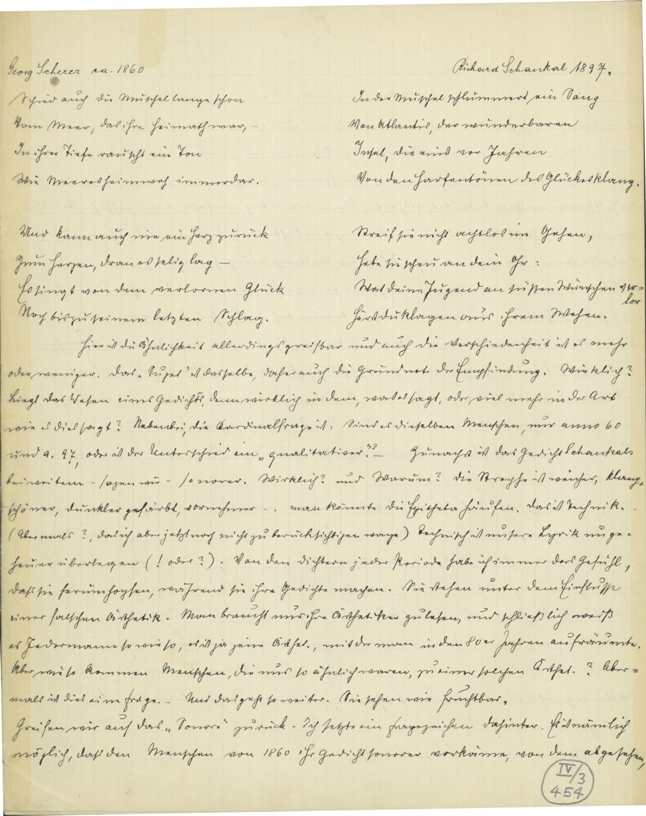 Georg Scherer ca. 1860
Schied auch die Muschel lange schon
Vom Meer, das ihre Heimath war, –
In ihrer Tiefe rauscht ein Ton
Wie Meeresheimweh immerdar.
Und kann auch nie ein Herz zurück
Zum Herzen, dran es selig lag –
Es singt von dem verlornen Glück
Noch bis zu seinem letzten Schlag.
Richard Schaukal 1897.
In der Muschel schlummert ein Sang
Von Atlantis, der wunderbaren
Insel, die einst vor Jahren
Von den Harfentönen des Glückes klang.
Streif sie nicht achtlos im Gehen,
Hebe sie scheu an dein Ohr:
Was deine Jugend an süßen Wünschen verlor
Hörst du klagen aus ihrem Wehen.
Hier ist die Ähnlichkeit allerdings greifbar und auch die Verschiedenheit ist es mehr
oder weniger. Das Sujet ist dasselbe, daher auch die Grundnote der Empfindung. Wirklich?
Liegt das Wesen eines Gedichts denn wirklich in dem, was es sagt, oder viel mehr in der Art
wie es dies sagt? Nebenbei, die Cardinalfrage ist: Sind es dieselben Menschen, nur anno 60
und a. 97, oder ist der Unterschied ein „qualitativer"? – Zunächst ist das Gedicht Schaukals
bei weitem – sagen wir – sonorer. Wirklich? und Warum? Die Strophe ist weicher, klang-
schöner, dunkler gefärbt, vornehmer .. man könnte die Epitheta häufen. Das ist Technik.
(Abermals ?, das ich aber jetzt noch nicht zu berücksichtigen wage) Technisch ist unsere Lyrik unge-
heuer überlegen (! oder ?). Von den Dichtern jeder Periode habe ich immer das Gefühl,
daß sie herumhopsen, während sie ihre Gedichte machen. Sie stehen unter dem Einflusse
einer falschen Ästhetik. Man braucht nur ihre Ästhetiker zu lesen, und schließlich weiß
es Jedermann sowieso, es ist ja jene Ästhet., mit der man in den 80er Jahren aufräumte.
Aber wieso kommen Menschen, die uns so ähnlich waren, zu einer solchen Ästhet.? Aber-
mals ist dies eine Frage. – Und das geht so weiter. Sie sehen wie fruchtbar.
Greifen wir auf das „Sonore" zurück. Ich setzte ein Fragezeichen dahinter. Es ist nämlich
möglich, daß den Menschen von 1860 ihr Gedicht sonorer vorkäme, von dem abgesehen,
IV/3
454